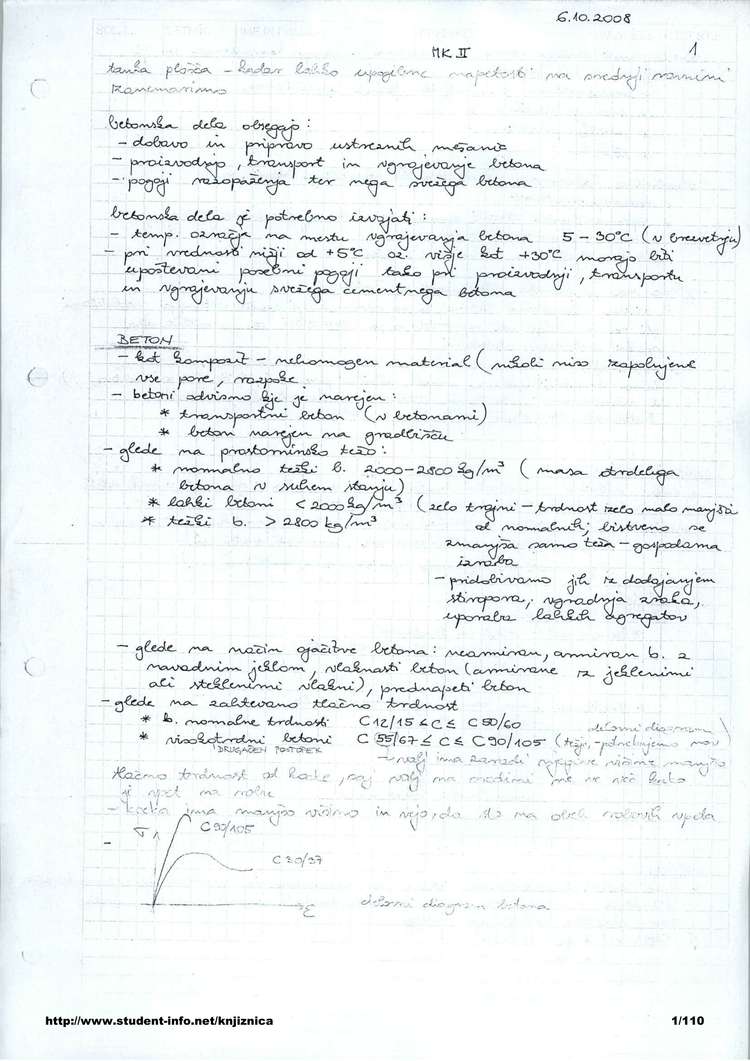 6.10.2008
MK II 1
tanka plošča - kadar lahko upogibne napetosti na srednji ravnini
zanemarimo
betonska dela obsegajo:
- dobavo in pripravo ustreznih mešanic
- proizvodnjo, transport in vgrajevanje betona
- pogoji razopaženja ter nega svežega betona
betonska dela je potrebno izvajati:
- temp. ozračja na mestu vgrajevanja betona 5 - 30°C (v brezvetrju)
- pri vrednosti nižji od +5°C oz. višje kot +30°C morajo biti
upoštevani posebni pogoji tako pri proizvodnji, transportu
in vgrajevanju svežega cementnega betona
BETON
- kot kompozit - nehomogen material (nikoli niso zapolnjene
vse pore, razpoke
- betoni odvisno kje je narejen:
* transportni beton (v betonarni)
* beton narejen na gradbišču
- glede na prostorninsko težo:
* normalno težki b. 2000-2800 kg/m³ (masa strdelega
betona v suhem stanju)
* lahki betoni < 2000 kg/m³ (zelo trajni - trdnost zelo malo manjša
* težki b. > 2800 kg/m³ od normalnih; bistveno se
zmanjša samo teža - gospodarna
izraba
- pridobivamo jih z dodajanjem
stiropora, vgradnja zraka,
uporaba lahkih agregatov
- glede na način ojačitve betona: nearmiran, armiran b. z
navadnim jeklom, vlaknasti beton (armirane z jeklenimi
ali steklenimi vlakni), prednapeti beton
- glede na zahtevano tlačno trdnost
* b. normalne trdnosti C12/15 ≤ C ≤ C50/60 delovni diagram
* visokotrdni betoni C 55/67 ≤ C ≤ C90/105 (težji, - potrebujemo nov
DRUGAČEN POSTOPEK
- valj ima zaradi njegove višine manjšo
tlačno trdnost od kocke, saj valj na sredini ne ve več kako
je vpet na robu
- kocka ima manjšo višino in ve, da sta na obeh robovih vpeta
σ C90/105
C30/37
ε delovni diagram betona
http://www.student-info.net/knjiznica 1/110